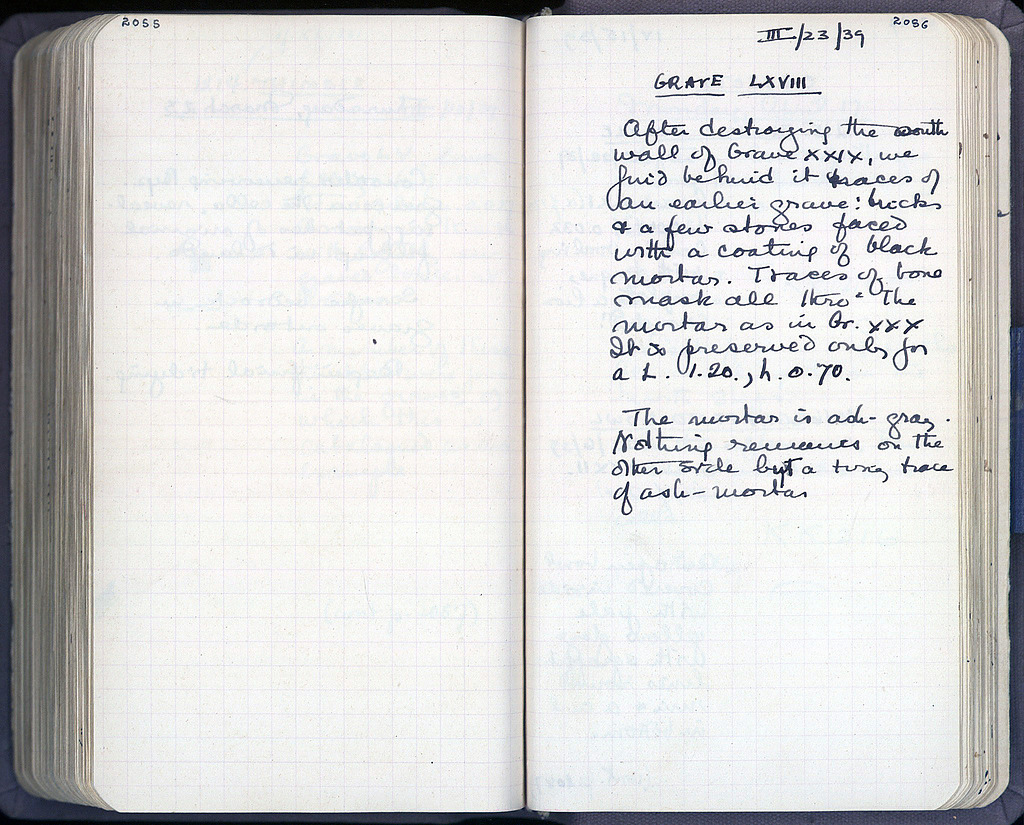 2055
2056
III/23/39
GRAVE LXVIII
After destroying the south
wall of Grave XXIX, we
find behind it traces of
an earlier grave: bricks
& a few stones faced
with a coating of black
mortar. Traces of bone
mask all thro' the
mortar as in Gr. XXX
It is preserved only for
a L. 1.20., h. 0.70.
The mortar is ash-gray.
Nothing remains on the
other side but a tiny trace
of ash-mortar